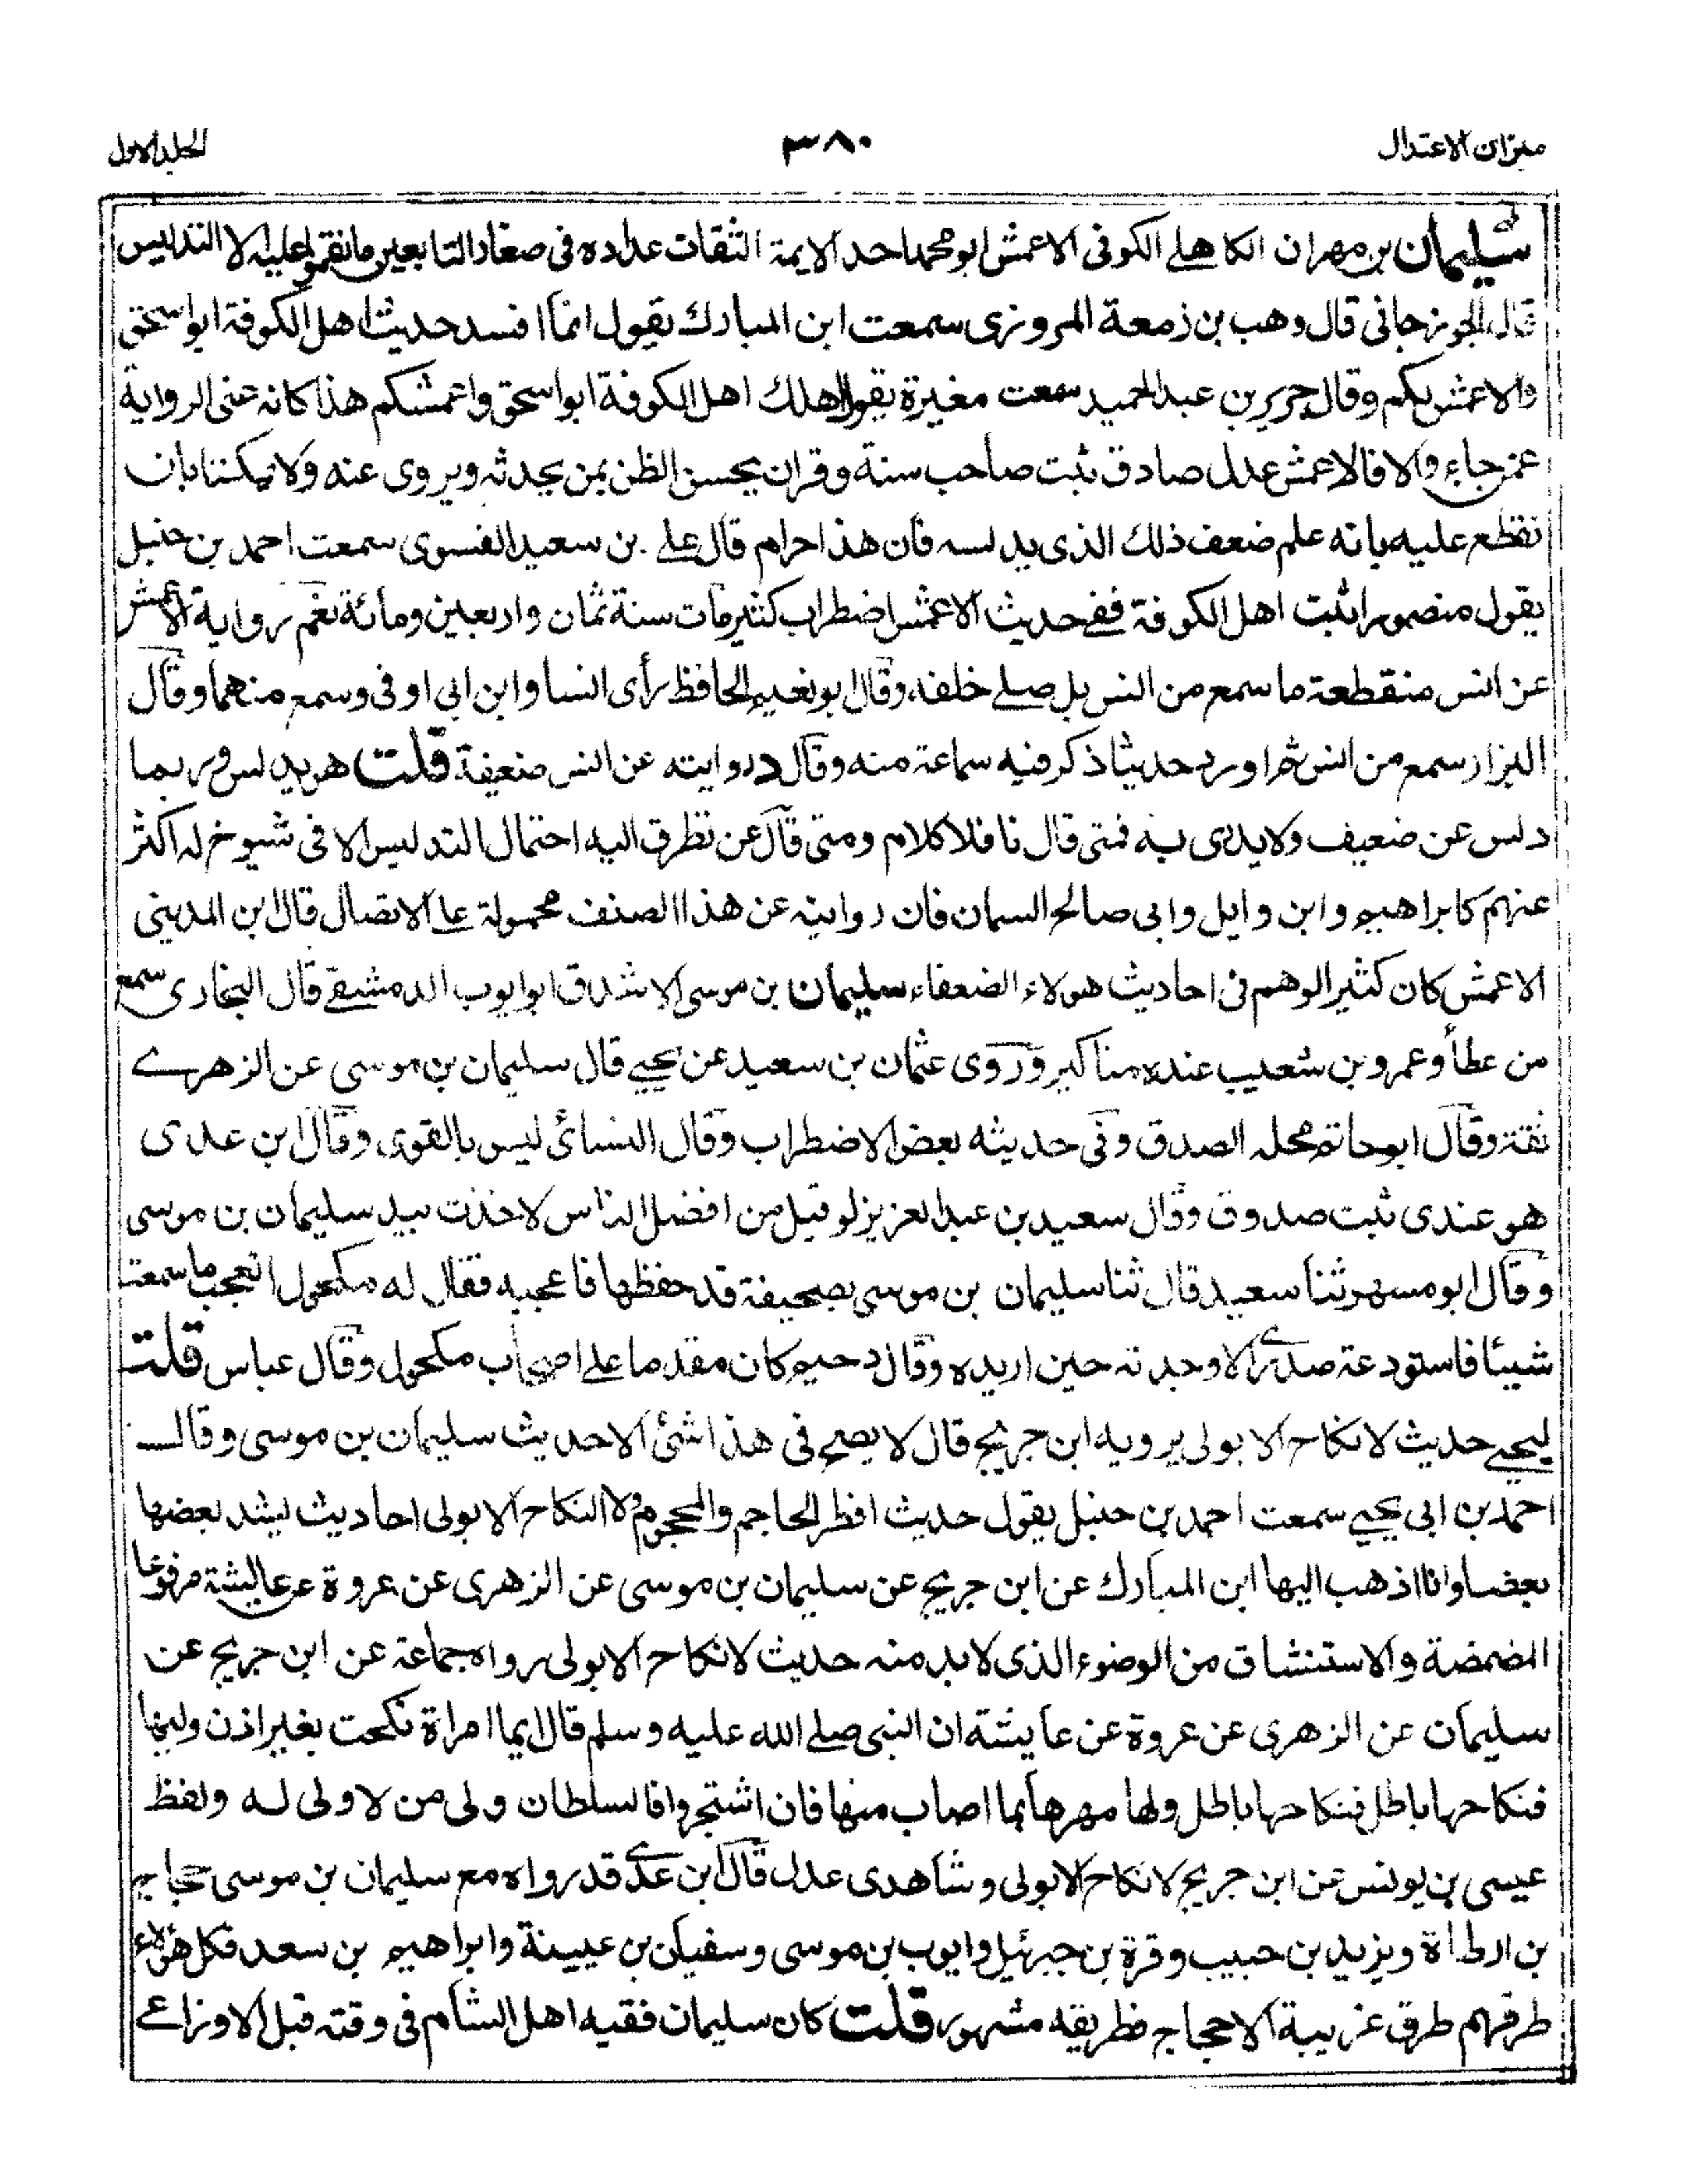 ميزان الاعتدال
٣٨٠
الجلد الاول
سليمان بن مهران الكاهلے الكوفی الاعمش ابو محمد احد الايمة الثقات عداده فی صغار التابعين مانقموا عليه الا التدليس
قال الجوزجانی قال وهب بن زمعة المروزی سمعت ابن المبارك يقول انما افسد حديث اهل الكوفة ابو اسحق
والاعمش بكم وقال جرير بن عبد الحميد سمعت مغيرة يقول اهلك اهل الكوفة ابو اسحق واعمشكم هذا كانه عنی الرواية
عمن جاء والا فالاعمش عدل صادق ثبت صاحب سنة وقران يحسن الظن بمن يحدثه ويروی عنه ولا يمكننا بان
نقطع عليه بانه علم ضعف ذلك الذی يدلسه فان هذا حرام قال علے بن سعيد الفسوی سمعت احمد بن حنبل
يقول منصور اثبت اهل الكوفة ففے حديث الاعمش اضطراب كثير مات سنة ثمان واربعين ومائة نعم رواية الاعمش
عن انس منقطعة ما سمع من انس بل صلے خلفه وقال ابو نعيم الحافظ رأی انسا وابن ابی اوفی وسمع منهما وقال
البزار سمع من انس ثم اورد حديثا ذكر فيه سماعة منه وقال د روايته عن انس ضعيفة قلت هو يدلس وربما
دلس عن ضعيف ولا يدری به فمتی قال نا فلا كلام ومتی قال عن تطرق اليه احتمال التدليس الا فی شيوخ له اكثر
عنهم كابراهيم وابن وايل وابی صالح السمان فان روايته عن هذا الصنف محمولة علے الاتصال قال ابن المدينی
الاعمش كان كثير الوهم فی احاديث هولاء الضعفاء سليمان بن موسی الاشدق ابو ايوب الدمشقے قال البخاری سمع
من عطأ وعمرو بن شعيب عنده مناكير وروی عثمان بن سعيد عن يحيے قال سليمان بن موسی عن الزهرے
ثقة وقال ابو حاتم محله الصدق وفی حديثه بعض الاضطراب وقال النسائی ليس بالقوی وقال ابن عدی
هو عندی ثبت صدوق وقال سعيد بن عبد العزيز لو قيل من افضل الناس لاخذت بيد سليمان بن موسی
وقال ابو مسهر ثنا سعيد قال ثنا سليمان بن موسی بصحيفة قد حفظها فاعجبه فقال له مكحول اتعجب ما سمعت
شيئا فاستودعته صدری الا وجدته حين اريده وقال دحيم كان مقدما علے اصحاب مكحول وقال عباس قلت
ليحيے حديث لا نكاح الا بولی يرويه ابن جريج قال لا يصح فی هذا شئ الا حديث سليمان بن موسی وقال
احمد بن ابی يحيے سمعت احمد بن حنبل يقول حديث افطر الحاجم والمحجوم ولا النكاح الا بولی احاديث يشد بعضها
بعضا وانا اذهب اليها ابن المبارك عن ابن جريج عن سليمان بن موسی عن الزهری عن عروة عن عائشة مرفوعا
المضمضة والاستنشاق من الوضوء الذی لا بد منه حديث لا نكاح الا بولی رواه جماعة عن ابن جريج عن
سليمان عن الزهری عن عروة عن عايشة ان النبی صلے الله عليه وسلم قال ايما امراة نكحت بغير اذن وليها
فنكاحها باطل فنكاحها باطل ولها مهرها بما اصاب منها فان اشتجروا فالسلطان ولی من لا ولی له ولفظ
عيسی بن يونس عن ابن جريج لا نكاح الا بولی وشاهدی عدل قال ابن عدے قد رواه مع سليمان بن موسی حجاج
بن ارطاة ويزيد بن حبيب وقرة بن جبرئيل وايوب بن موسی وسفيان بن عيينة وابراهيم بن سعد فكل هؤلاء
طرقهم طرق غريبة الا حجاج فطريقه مشهور قلت كان سليمان فقيه اهل الشام فی وقته قبل الاوزاعے